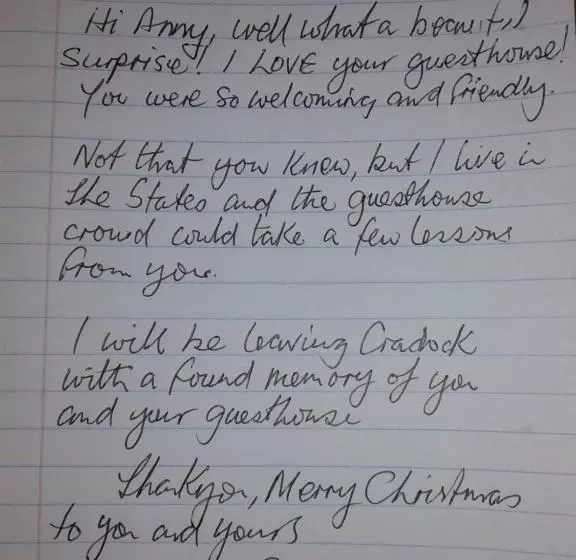 Hi Anny, well what a beautiful
Surprise! I LOVE your guesthouse!
You were so welcoming and friendly.
Not that you knew, but I live in
the States and the guesthouse
crowd could take a few lessons
from you.
I will be leaving Cradock
with a found memory of you
and your guesthouse
Thankyou, Merry Christmas
to you and yours